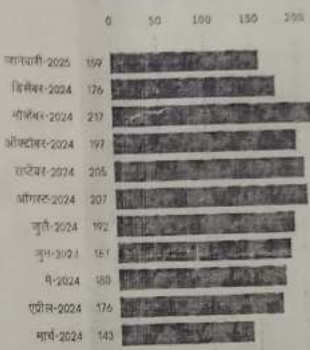 0 50 100 150 200
जानवारी-2025 159
डिसेंबर-2024 176
नोव्हेंबर-2024 217
ऑक्टोबर-2024 197
सप्टेंबर-2024 205
ऑगस्ट-2024 207
जुलै-2024 192
जुन-2024
मे-2024 180
एप्रील-2024 176
मार्च-2024 143